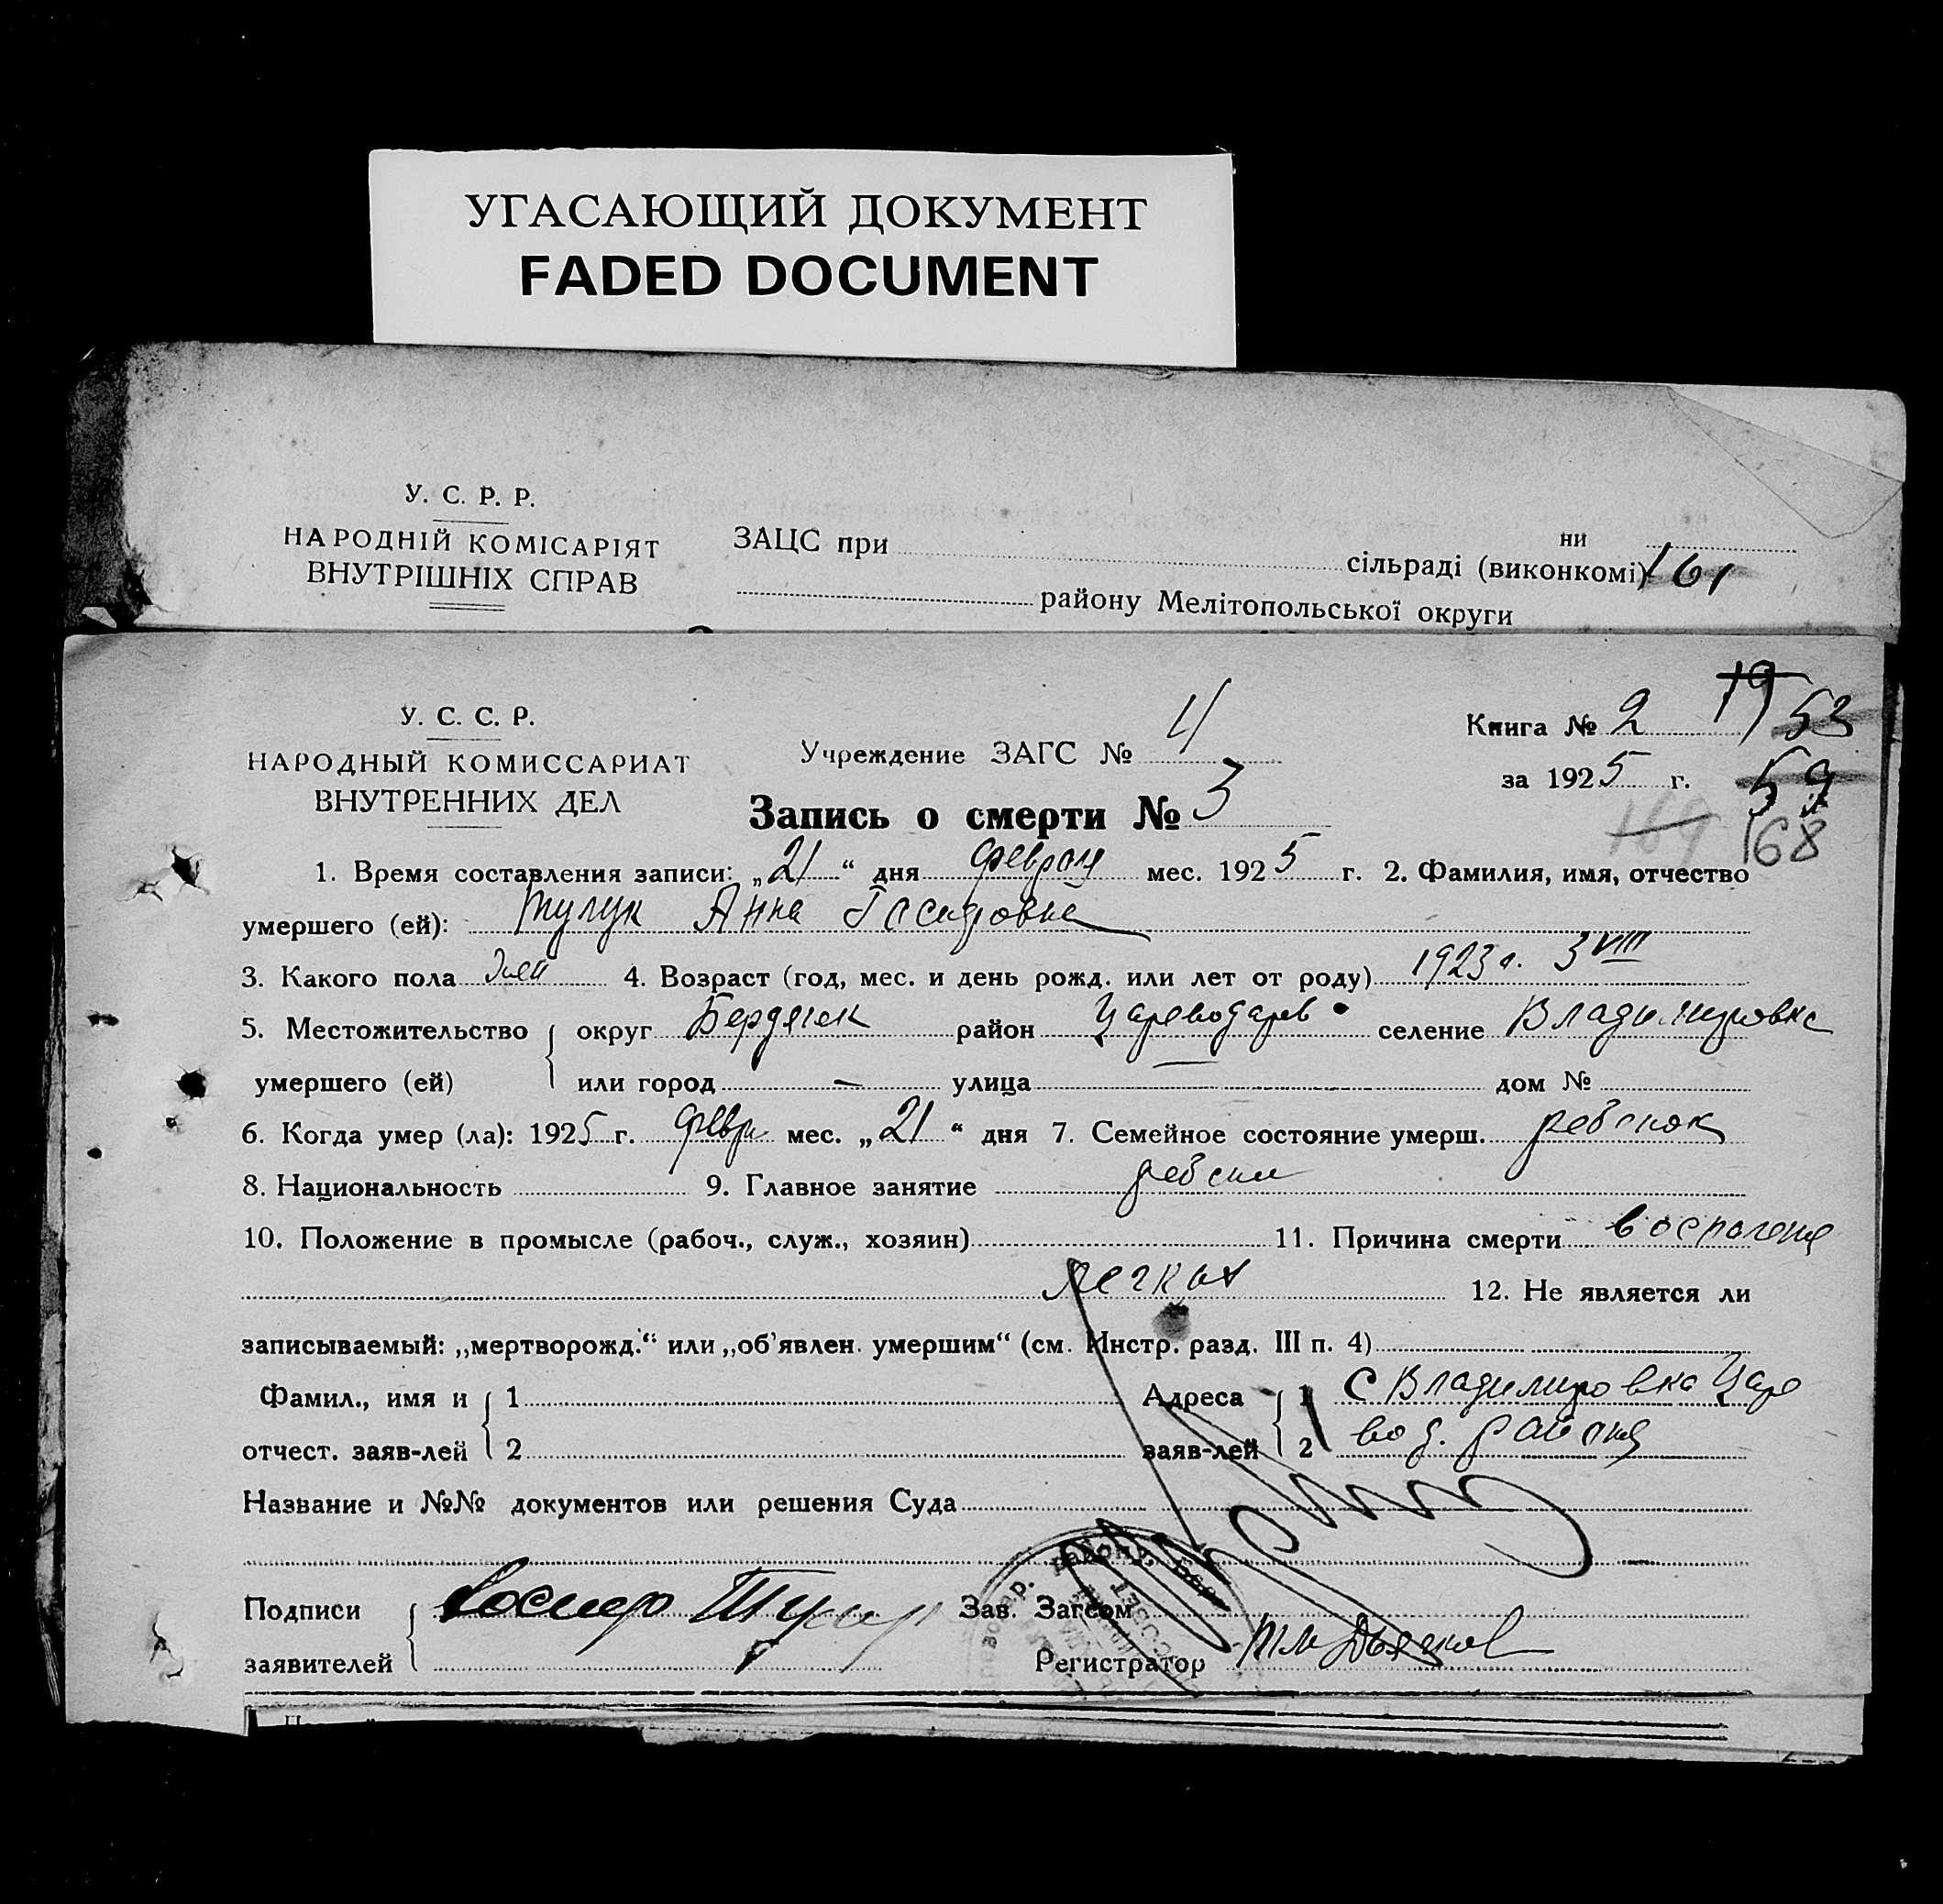 УГАСАЮЩИЙ ДОКУМЕНТ
FADED DOCUMENT
У. С. Р. Р.
НАРОДНІЙ КОМІСАРІЯТ
ВНУТРІШНІХ СПРАВ
ЗАЦС при сільраді (виконкомі)
ни
161
району Мелітопольської округи
У. С. С. Р.
НАРОДНЫЙ КОМИССАРИАТ
ВНУТРЕННИХ ДЕЛ
Учреждение ЗАГС № 4
Книга № 2
19 53
за 1925 г.
59
Запись о смерти № 3
169 168
1. Время составления записи: „21“ дня мес. 1925 г. 2. Фамилия, имя, отчество
умершего (ей): Анна
3. Какого пола 4. Возраст (год, мес. и день рожд. или лет от роду) 1923 г. 3 VIII
5. Местожительство округ район селение Владимировка
умершего (ей) или город — улица — дом №
6. Когда умер (ла): 1925 г. мес. „21“ дня 7. Семейное состояние умерш. ребенок
8. Национальность 9. Главное занятие
10. Положение в промысле (рабоч., служ., хозяин) 11. Причина смерти
легких 12. Не является ли
записываемый: „мертворожд.“ или „об'явлен. умершим“ (см. Инстр. разд. III п. 4)
Фамил., имя и 1 Адреса 1 С Владимировка Царе
отчест. заяв-лей 2 заяв-лей 2 вод. района
Название и №№ документов или решения Суда
Подписи Зав. Загсом
заявителей Регистратор